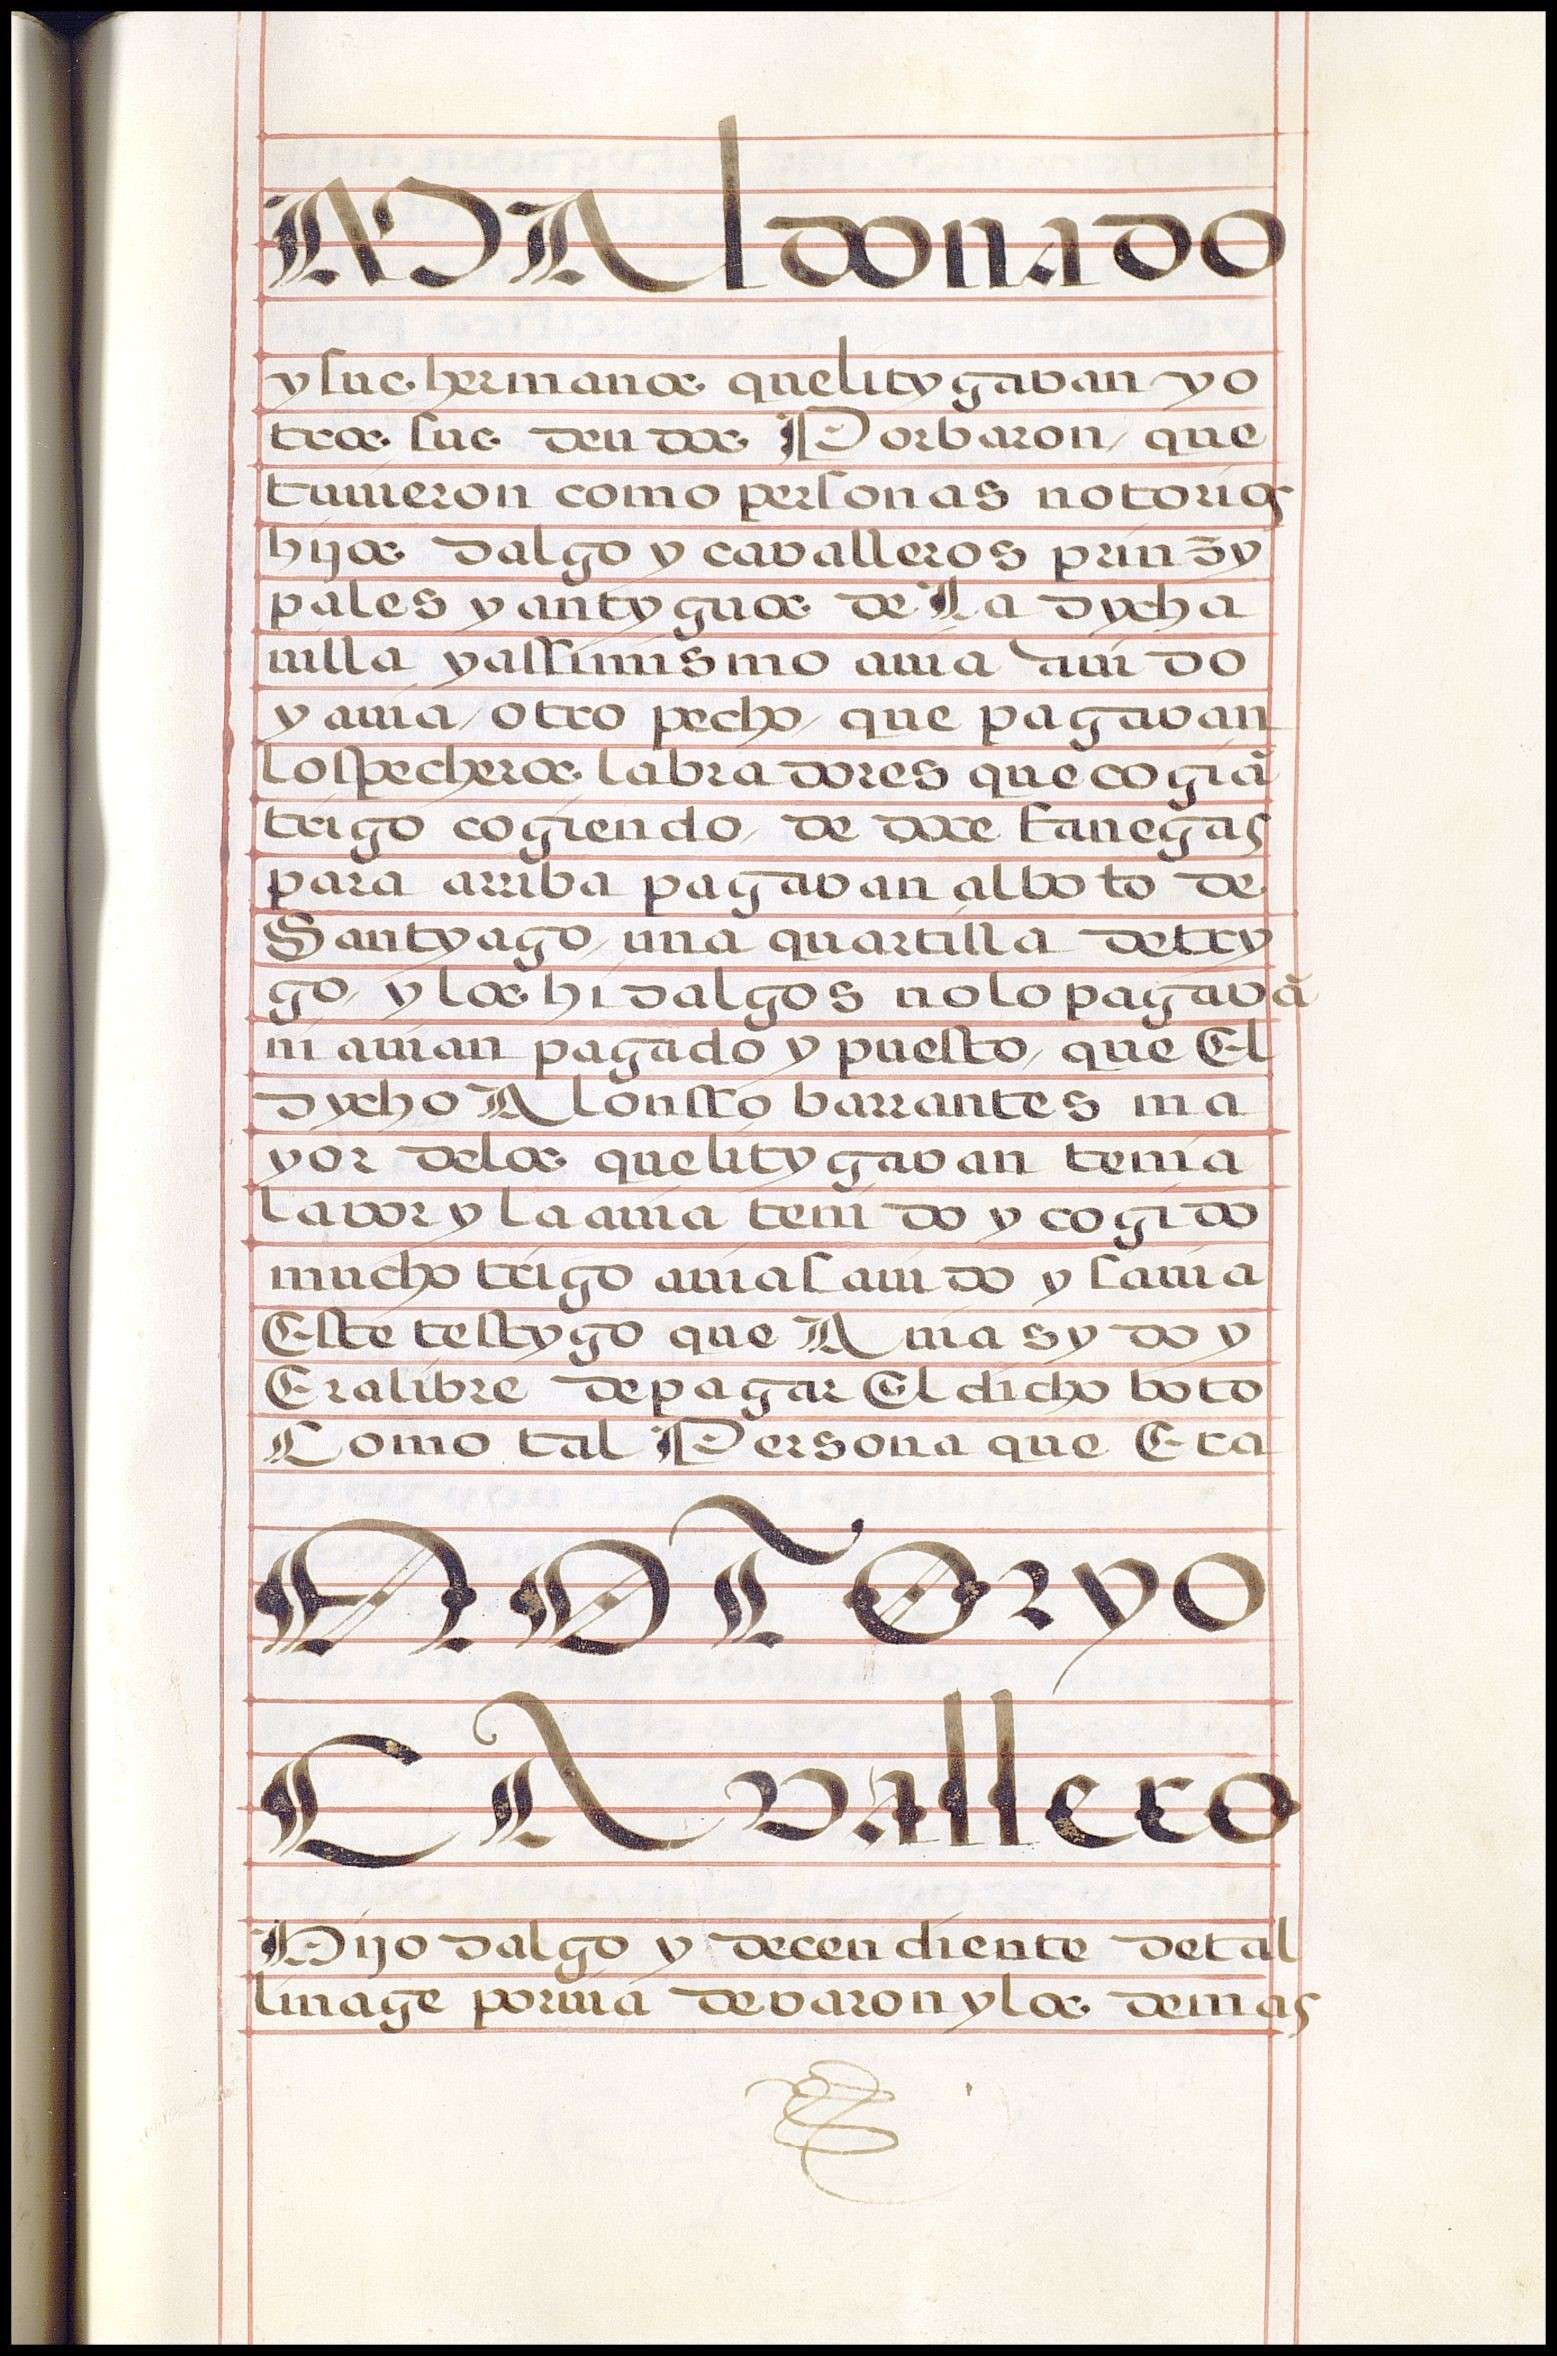 MAldonado
y sus hermanos que litygavan y o
tros sus deudos Porbaron que
tuuieron como personas notorios
hijos dalgo y cavalleros prinçy
pales y antyguos de La dycha
uilla y assimismo auia auido
y auia otro pecho que pagavan
los pecheros labradores que cogiã
trigo cogiendo de doze fanegas
para arriba pagavan al boto de
Santyago una quartilla de try
go y los hidalgos no lo pagavã
ni auian pagado y puesto que El
dycho Alonsso barrantes ma
yor de los que litygavan tenia
lavor y la auia tenido y cogido
mucho trigo auia sauido y sauia
Este testygo que Auia sydo y
Era libre de pagar El dicho boto
Como tal Persona que Era
NOTOryo
CAvallero
Hijo dalgo y decendiente de tal
linage por uia de varon y los demas